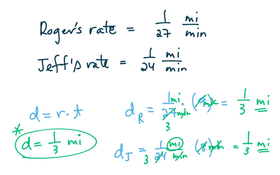 Roger's rate = 1/27 mi/min
Jeff's rate = 1/24 mi/min
d = r · t
* d = 1/3 mi
d_R = 1/27 mi/min (9 min) = 1/3 mi
3
d_J = 1/24 mi/min (8 min) = 1/3 mi
3